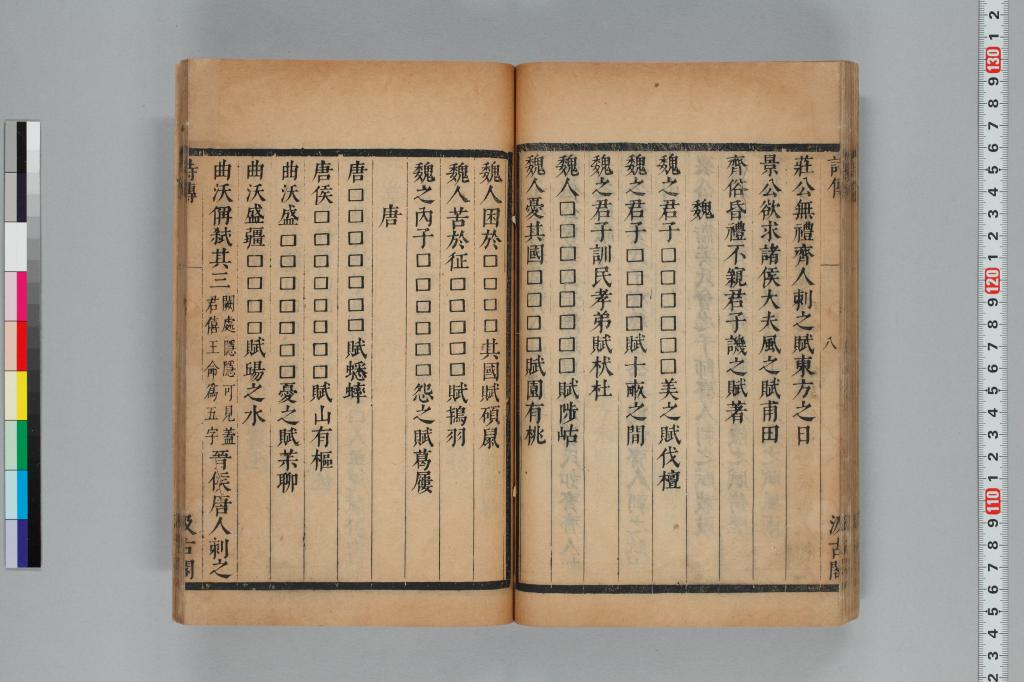 詩傳
八
汲古閣
莊公無禮齊人刺之賦東方之日
景公欲求諸侯大夫風之賦甫田
齊俗昏禮不親君子譏之賦著
魏
魏之君子□□□□□美之賦伐檀
魏之君子□□□□賦十畝之間
魏之君子訓民孝弟賦杕杜
魏人□□□□□□□賦陟岵
魏人憂其國□□□□賦園有桃
魏人困於□□□□其國賦碩鼠
魏人苦於征□□□□賦鴇羽
魏之內子□□□□□怨之賦葛屨
唐
唐□□□□□□□賦蟋蟀
唐侯□□□□□□□□賦山有樞
曲沃盛□□□□□□憂之賦茮聊
曲沃盛疆□□□□賦昜之水
曲沃倗弒其三闕處隱隱可見蓋君僖王命爲五字晉侯唐人刺之
詩傳
汲古閣
130
120
110